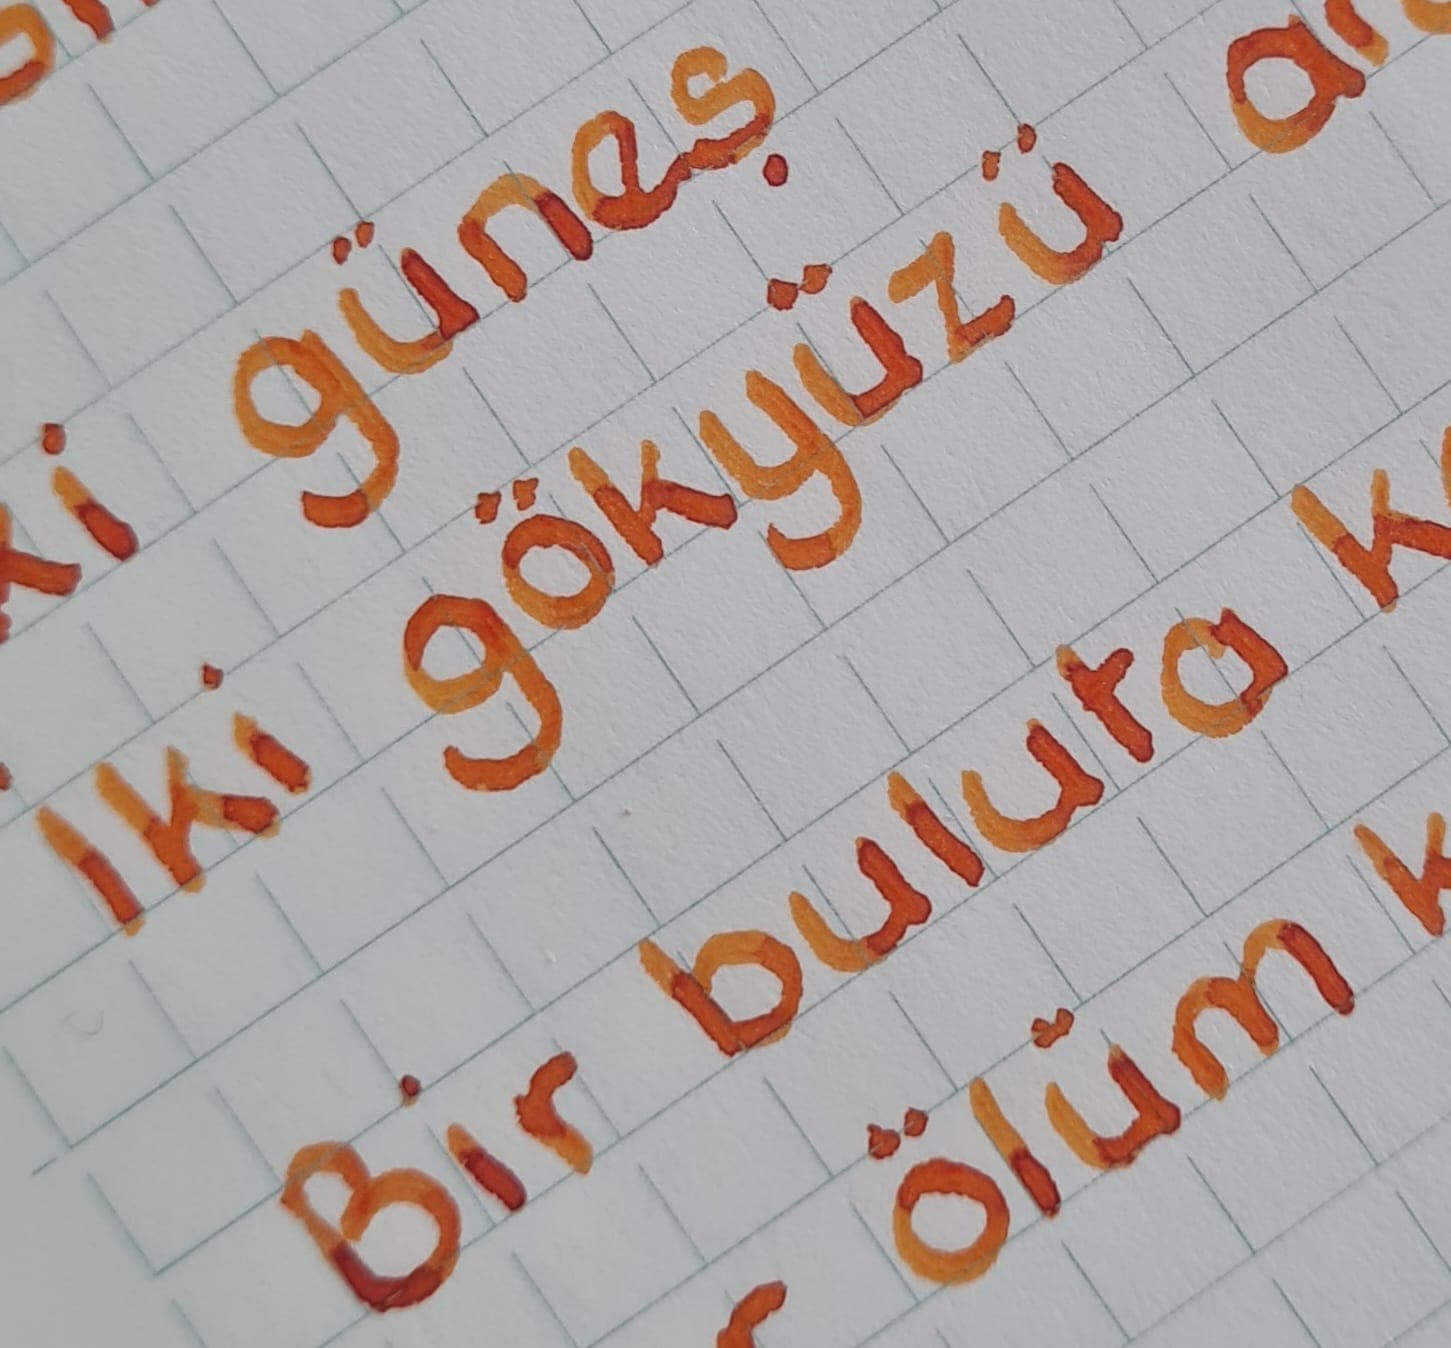 güneş
Iki gökyüzü
Bir buluta
ölüm